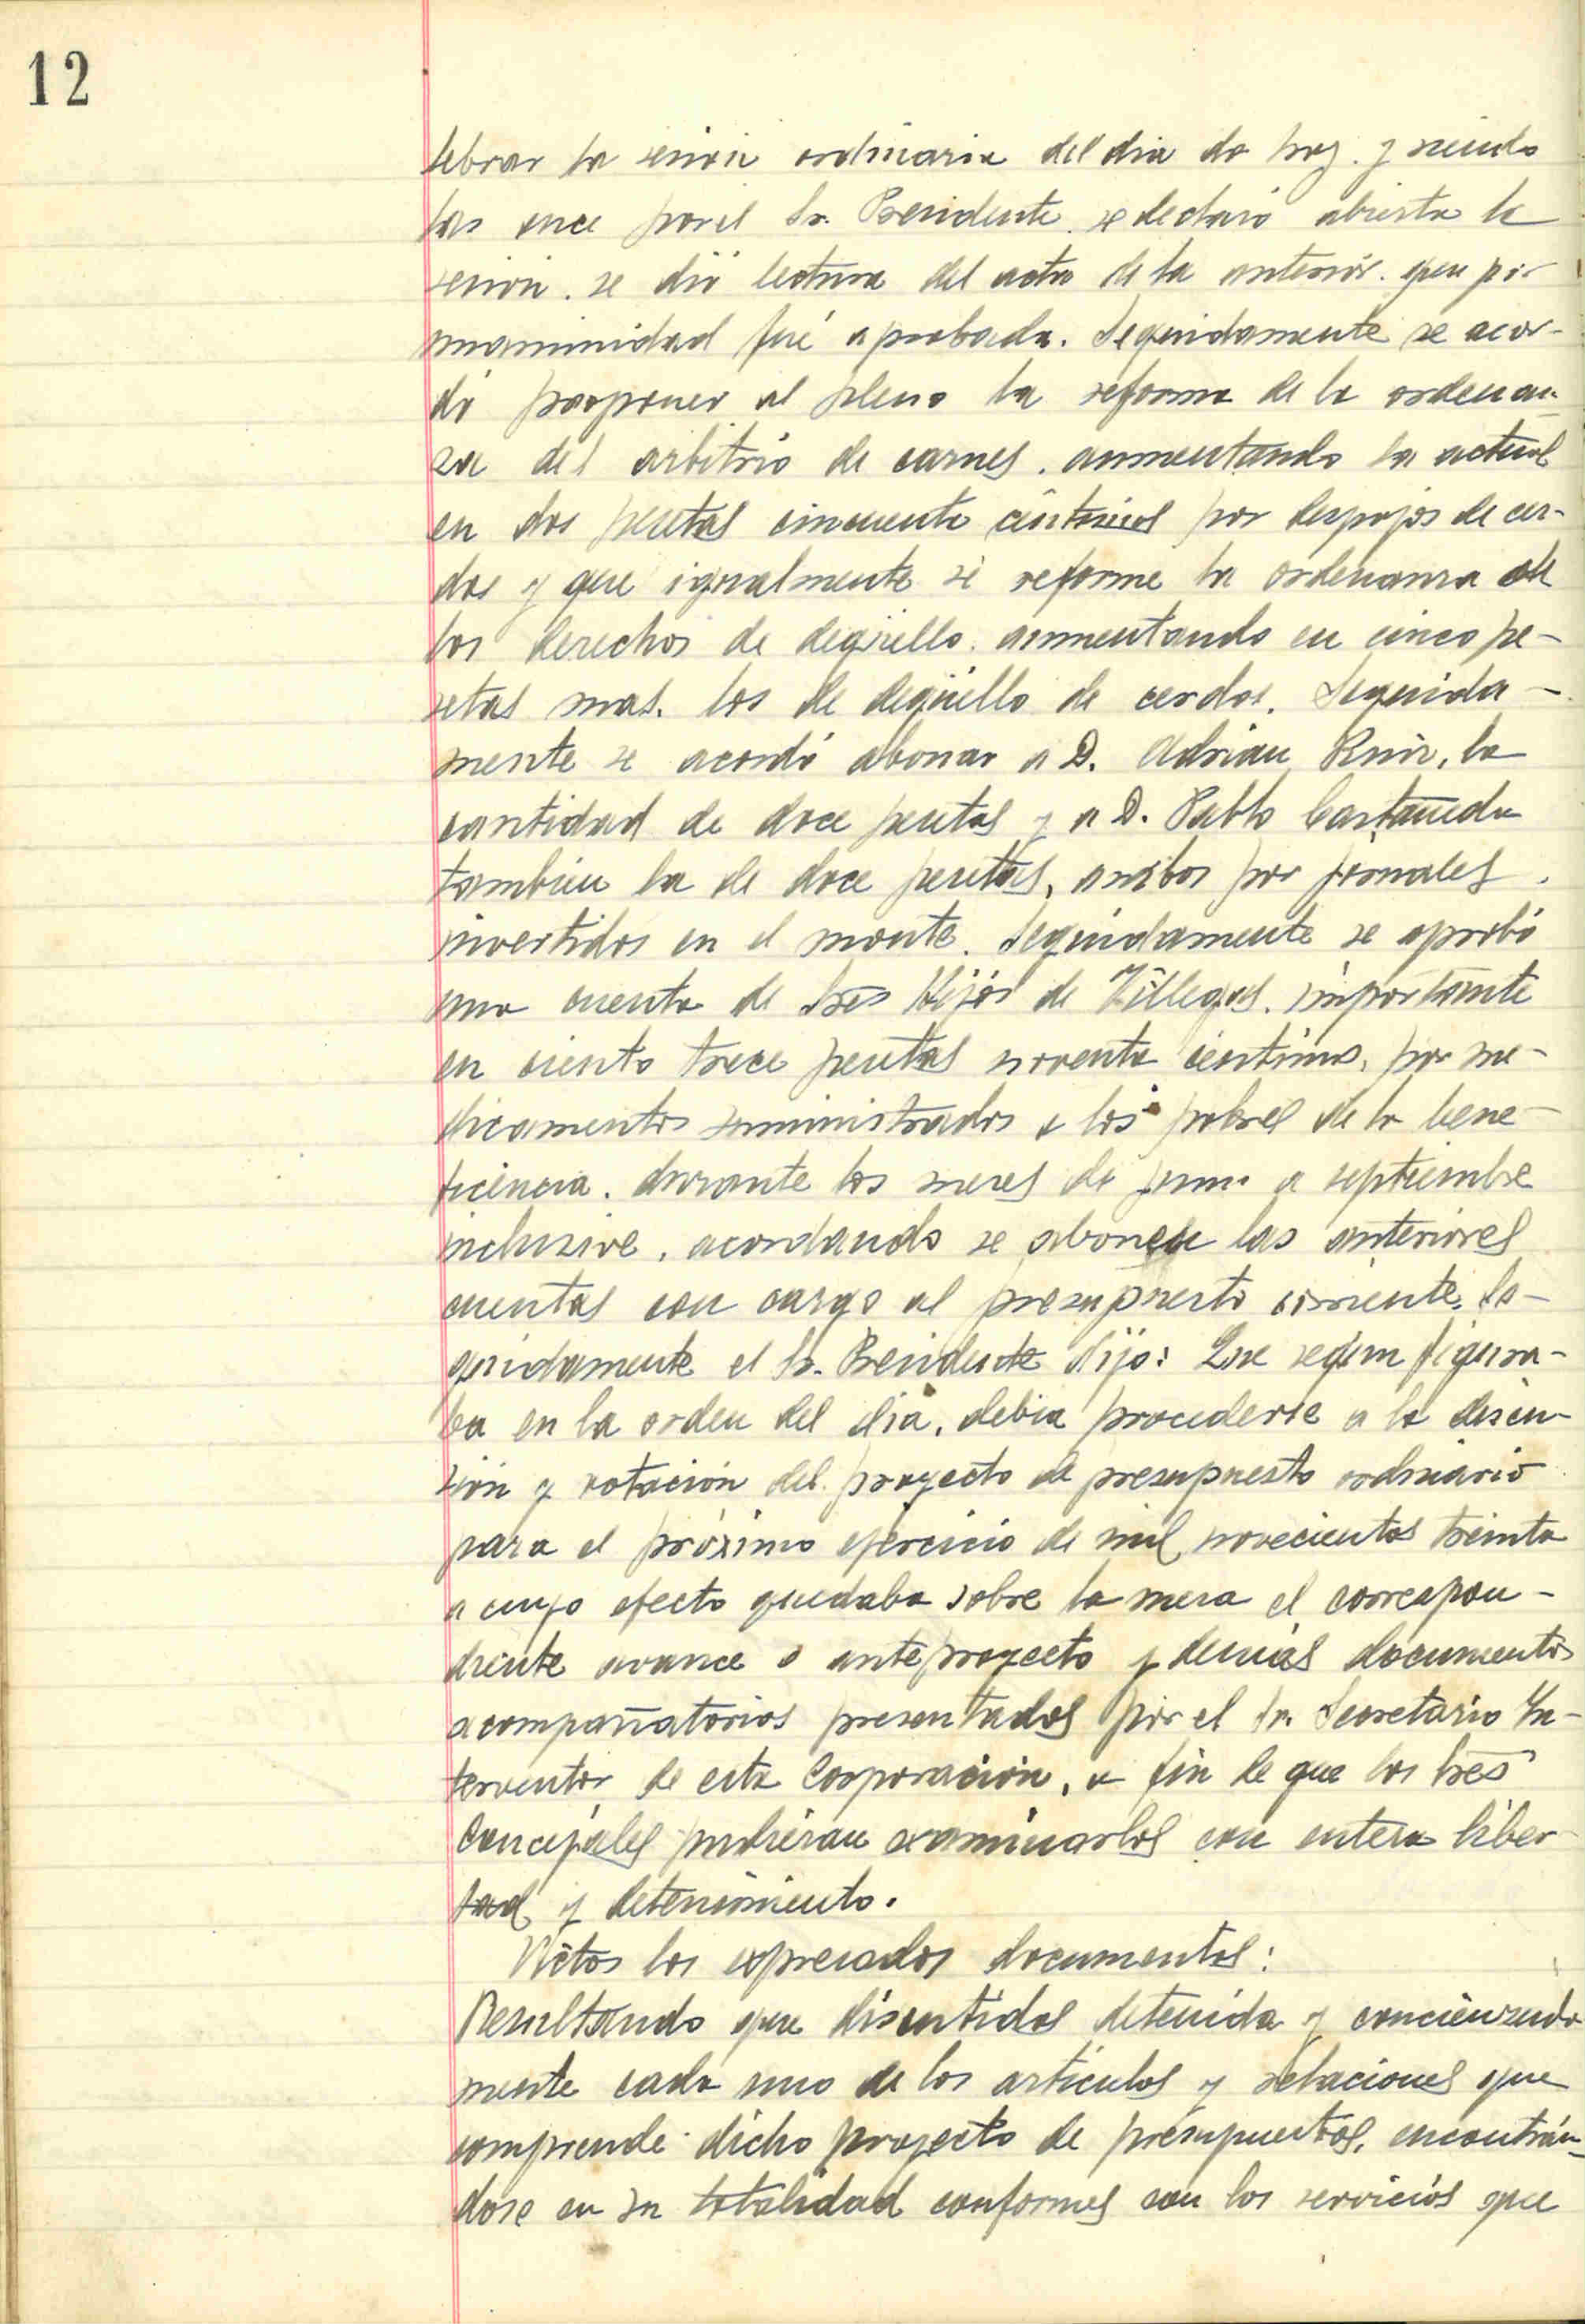 12
lebrar la sesión ordinaria del dia de hoy. y siendo
las once por el Sr. Presidente. se declaró abierta la
sesión. se dió lectura del acta de la anterior. que por
unanimidad fué aprobada. Seguidamente se acor-
dó proponer al pleno la reforma de la ordenan-
za del arbitrio de carnes. aumentando la actual
en dos pesetas cincuenta céntimos por despojos de cer-
dos y que igualmente se reforme la ordenanza de
los derechos de degüello. aumentando en cinco pe-
setas mas. los de degüello de cerdos. Seguida-
mente se acordó abonar a D. Adrian Ruiz, la
cantidad de doce pesetas y a D. Pablo Castañeda
tambien la de doce pesetas, ambos por jornales.
invertidos en el monte. Seguidamente se aprobó
una cuenta de Sres Hijos de Villegas. importante
en ciento trece pesetas noventa céntimos, por me-
dicamentos suministrados a los pobres de la bene-
ficencia. durante los meses de junio a septiembre
inclusive. acordando se abonen las anteriores
cuentas con cargo al presupuesto corriente. Se-
guidamente el Sr. Presidente dijo: Que según figura-
ba en la orden del dia, debia procederse a la discu-
sión y votación del proyecto de presupuesto ordinario
para el próximo ejercicio de mil novecientos treinta
a cuyo efecto quedaba sobre la mesa el correspon-
diente avance o anteproyecto y demás documentos
acompañatorios presentados por el Sr. Secretario In-
terventor de esta Corporación, a fin de que los Sres
Concejales pudieran examinarlos con entera liber-
tad y detenimiento.
Vistos los expresados documentos:
Resultando que discutidos detenida y concienzuda
mente cada uno de los artículos y relaciones que
comprende dicho proyecto de presupuestos, encontrán-
dose en su totalidad conformes con los servicios que